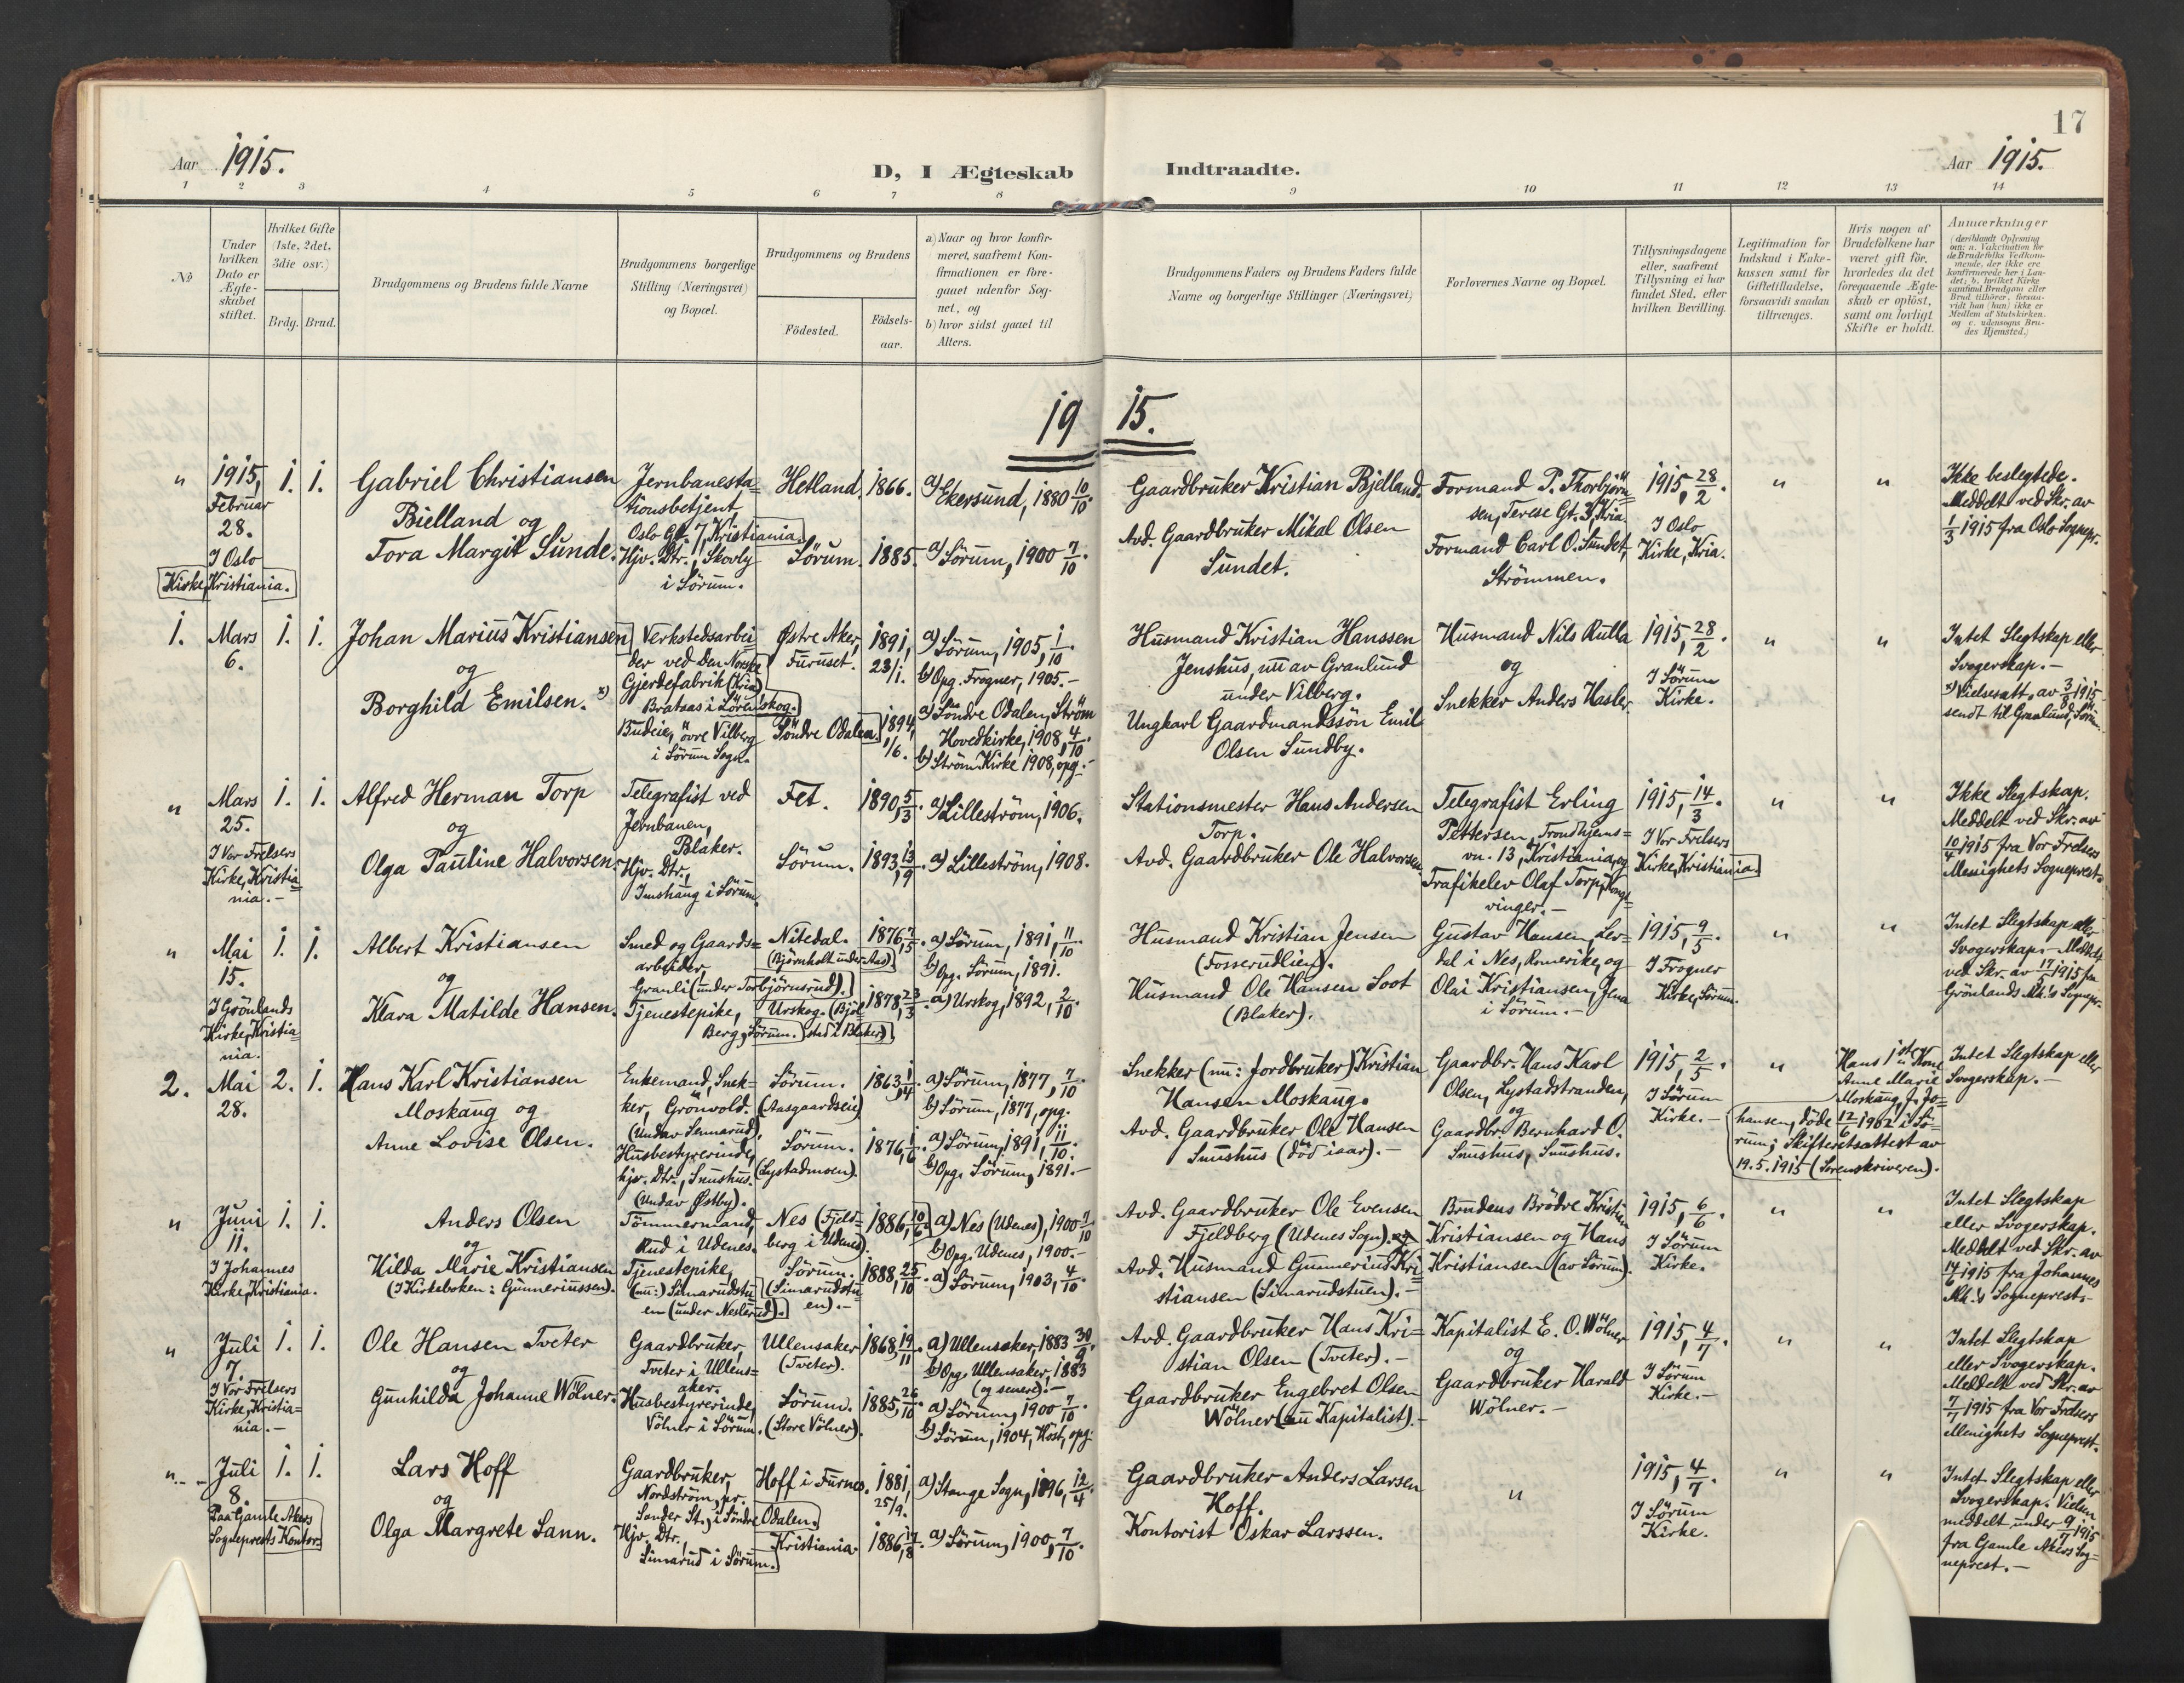 17
Aar 1915.
D, I Ægteskab Indtraadte.
Aar 1915.
1 2 3 4 5 6 7 8 9 10 11 12 13 14
No
Under hvilken Dato er Ægteskabet stiftet.
Hvilket Gifte (1ste, 2det, 3die osv.)
Brdg. Brud.
Brudgommens og Brudens fulde Navne
Brudgommens borgerlige Stilling (Næringsvei) og Bopæl.
Brudgommens og Brudens
Födested.
Födsels-aar.
a) Naar og hvor konfir-
meret, saafremt Kon-
firmationen er fore-
gaaet udenfor Sog-
net, og
b) hvor sidst gaaet til
Alters.
Brudgommens Faders og Brudens Faders fulde
Navne og borgerlige Stillinger (Næringsvei)
Forlovernes Navne og Bopæl.
Tillysningsdagene
eller, saafremt
Tillysning ei har
fundet Sted, efter
hvilken Bevilling.
Legitimation for
Indskud i Enke-
kassen samt for
Giftetilladelse,
forsaavidt saadan
tiltrænges.
Hvis nogen af
Brudefolkene har
været gift för,
hvorledes da det
foregaaende Ægte-
skab er oplöst,
samt om lovligt
Skifte er holdt.
Anmærkninger
(deriblandt Oplysning
om: a. Vakcination for
de Brudefolks Vedkom-
mende, der ikke ere
konfirmerede her i Lan-
det; b. hvilket Kirke-
samfund Brudgom eller
Brud tilhörer, forsaa-
vidt han (hun) ikke er
Medlem af Statskirken,
og c. udensogns Bru-
des Hjemsted.)
19 15.
" 1915, Februar 28. I Oslo Kirke, Kristiania.
1. 1.
Gabriel Christiansen
Bielland og
Tora Margit Sunde.
Jernbanesta=
tionsbetjent,
Oslo Gt. 7, Kristiania.
Hjv. Dtr., Skovly
i Sörum.
Hetland, 1866.
Sörum. 1885.
a) Ekersund, 1880 10/10.
a) Sörum, 1900 7/10.
Gaardbruker Kristian Bjelland.
Avd. Gaardbruker Mikal Olsen
Sundet.
Formand P. Thorbjörn=
sen, Terese Gt. 3, Kria.
Formand Carl O. Sundet,
Strömmen.
1915, 28/2.
I Oslo
Kirke, Kria.
" "
Ikke beslegtede.
Meddelt ved Skr. av
1/3 1915 fra Oslo Sognepr.
1. Mars 6.
1. 1.
Johan Marius Kristiansen
og
Borghild Emilsen. x)
Verkstedsarbei=
der ved Den Norske
Gjerdefabrik (Kria)
Brataas i Lörenskog.
Budeie, övre Vilberg
i Sörum Sogn.
Østre Aker, Furuset. 1891, 23/1.
Söndre Odalen. 1894, 1/6.
a) Sörum, 1905, 1/10.
b) Opg. Frogner, 1905.-
a) Söndre Odalen, Ström
Hovedkirke, 1908, 4/10.
b) Ström Kirke 1908, opg.-
Husmand Kristian Hanssen
Jenshus, nu av Granlund
under Vilberg.
Ungkarl Gaardmandssön Emil
Olsen Sundby.
Husmand Nils Rulla
og
Snekker Anders Hasler.
1915, 28/2.
I Sörum
Kirke.
" "
Intet Slegtskap eller
Svogerskap.-
x) Vielsesatt. av 3/8 1915
sendt til Granlund, Sörum.
" Mars 25. I Vor Frelsers Kirke, Kristia=nia.-
1. 1.
Alfred Herman Torp
og
Olga Pauline Halvorsen.
Telegrafist ved
Jernbanen,
Blaker.
Hjv. Dtr.,
Imshaug i Sörum.
Fet. 1890, 5/3.
Sörum. 1893, 13/9.
a) Lilleström, 1906.
a) Lilleström, 1908.
Stationsmester Hans Andersen
Torp.
Avd. Gaardbruker Ole Halvorsen.
Telegrafist Erling
Pettersen, Trondhjems=
vn. 13, Kristiania, og
Trafikelev Olaf Torp, Kongs=
vinger.-
1915, 14/3.
I Vor Frelsers
Kirke, Kristiania.
" "
Ikke Slegtskap.
Meddelt ved Skr. av
10/4 1915 fra Vor Frelsers
Menighets Sogneprest.
" Mai 15. I Grönlands Kirke, Kristia=nia.
1. 1.
Albert Kristiansen
og
Klara Matilde Hansen.
Smed og Gaards=
arbeider,
Granli (under Torbjörnsrud).
Tjenestepike,
Berg, Sörum.
Nitedal. (Björnholt under Aas) 1876, 7/5.
Urskog. (Bjöl= sted i Blaker) 1878, 23/3.
a) Sörum, 1891, 11/10.
b) Opg. Sörum, 1891.
a) Urskog, 1892, 2/10.
Husmand Kristian Jensen
(Fosserudlien).
Husmand Ole Hansen Soot
(Blaker).
Gustav Hansen, Ler=
dal i Nes, Romerike, og
Olai Kristiansen, Jena
i Sörum.-
1915, 9/5.
I Frogner
Kirke, Sörum.
" "
Intet Slegtskap eller
Svogerskap.- Meddelt
ved Skr. av 17/5 1915 fra
Grönlands Mh.'s Sognepr.
2. Mai 28.
2. 1.
Hans Karl Kristiansen
Moskaug og
Anne Lovise Olsen.
Enkemand, Snek=
ker, Grönvold.
(Undav Sennerud),
Husbestyrerinde,
hjv. Dtr., Snushus.
(Undav Østby).
Sörum. (Aasgaardseie) 1863, 1/4.
Sörum. (Lystadmoen). 1876, 1/6.
a) Sörum, 1877, 7/10.
b) Sörum, 1877, opg.
a) Sörum, 1891, 11/10.
b) Opg. Sörum, 1891.-
Snekker (nu: Jordbruker) Kristian
Hansen Moskaug.
Avd. Gaardbruker Ole Hansen
Snushus (död iaar).-
Gaardbr. Hans Karl
Olsen, Lystadstranden,
og
Gaardbr. Bernhard O.
Snushus, Snushus.
1915, 2/5.
I Sörum
Kirke.-
"
Hans 1ste Kone
Anne Marie
Moskaug, f. Jo=
hansen, döde 12/6 1902 i Sö=
rum; Skifteretsattest av
19.5.1915 (Sorenskriveren).
Intet Slegtskap eller
Svogerskap.-
" Juni 11. I Johannes Kirke, Kristiania.
1. 1.
Anders Olsen
og
Hilda Marie Kristiansen
(I Kirkeboken: Gunneriussen).
Tömmermand,
Rud i Udenes.
Tjenestepike,
(nu:) Simarudstu=
en (under Neslerud).
Nes (Fjeld=berg i Udenes). 1886, 10/6.
Sörum. (Simarudstu=en).- 1888, 25/10.
a) Nes (Udenes), 1900 7/10
b) Opg. Udenes, 1900.-
a) Sörum, 1903, 4/10.
Avd. Gaardbruker Ole Evensen
Fjeldberg (Udenes Sogn).
Avd. Husmand Gunnerius Kri=
stiansen (Simarudstuen).-
Brudens Brödre Kristian
Kristiansen og Hans
Kristiansen (av Sörum).
1915, 6/6.
I Sörum
Kirke.
" "
Intet Slegtskap
eller Svogerskap.
Meddelt ved Skr. av
14/6 1915 fra Johannes
Mh.'s Sogneprest.-
" Juli 7. I Vor Frelsers Kirke, Kristia=nia.-
1. 1.
Ole Hansen Tveter
og
Gunhilda Johanne Wölner.
Gaardbruker,
Tveter i Ullens=
aker.
Husbestyrerinde,
Völner i Sörum.
Ullensaker (Tveter). 1868, 19/11.
Sörum. (Store Völner). 1885, 26/10.
a) Ullensaker, 1883 30/9.
b) Opg. Ullensaker, 1883
(og senere).-
a) Sörum, 1900 7/10.
b) Sörum, 1904, Höst, opg.
Avd. Gaardbruker Hans Kri=
stian Olsen (Tveter).-
Gaardbruker Engebret Olsen
Wölner (nu Kapitalist).-
Kapitalist E. O. Wölner
og
Gaardbruker Harald
Wölner.-
1915, 4/7.
I Sörum
Kirke.-
" "
Intet Slegtskap
eller Svogerskap.
Meddelt ved Skr. av
7/7 1915 fra Vor Frelsers
Menighets Sogneprest.
" Juli 8. Paa Gamle Akers Sogneprests Kontor.
1. 1.
Lars Hoff
og
Olga Margrete Sann.
Gaardbruker,
Nordström, pr.
Sander St., i Söndre Odalen.
Hjv. Dtr.,
Simarud i Sörum.
Hoff i Furnes. 1881, 25/9.
Kristiania. 1886, 17/8.
a) Stange Sogn, 1896, 12/4.
a) Sörum, 1900, 7/10.
Gaardbruker Anders Larsen
Hoff.
Kontorist Oskar Larssen.
"
1915, 4/7.
I Sörum
Kirke.
" "
Intet Slegtskap eller
Svogerskap. Vielsen
meddelt under 9/7 1915
fra Gamle Akers Sog=
neprest.-